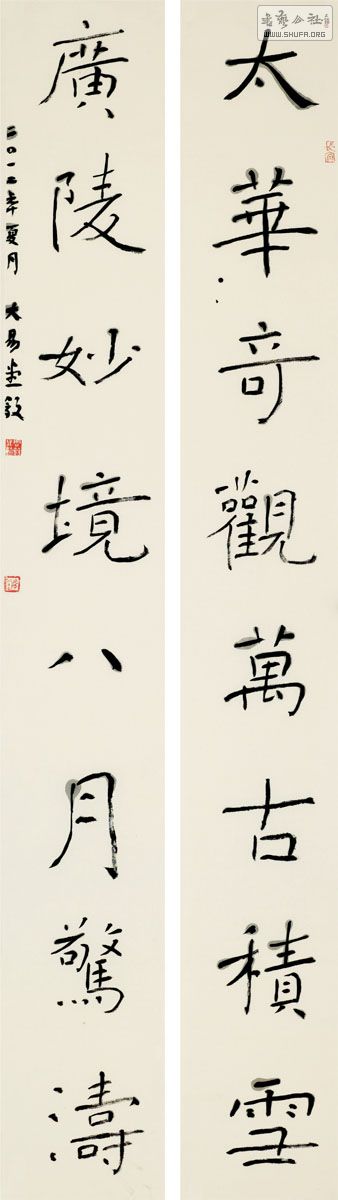 太華奇觀萬古積雪
廣陵妙境八月驚濤
二〇一二年夏月 大易
書藝公社
WWW.SHUFA.ORG